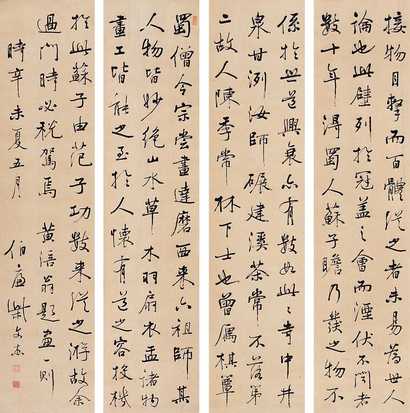 接物目擊而百體從之者未易為世人
論也此壁列於冠蓋之會而湮伏不聞者
數十年得蜀人蘇子瞻乃發之物不
係於世道興衰亦有數如此寺中井
泉甘洌汝師碾建溪茶常不落第
二故人陳季常林下士也嘗屬棋簟
蜀僧令宗嘗畫達磨西來六祖師其
人物皆妙絕山水草木羽扇衣盂諸物
畫工皆能之至於人懷有道之容投機
於此蘇子由范子功數來從之游故余
過門時必稅駕焉 黃涪翁題畫一則
時辛未夏五月 伯